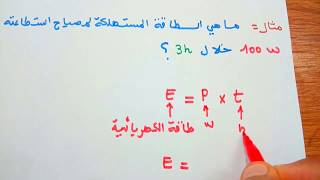 مثال = ما هي الطاقة المستهلكة لمصباح استطاعته
100 w خلال 3h ؟
E = P × t
طاقة الكهربائية w h
E =